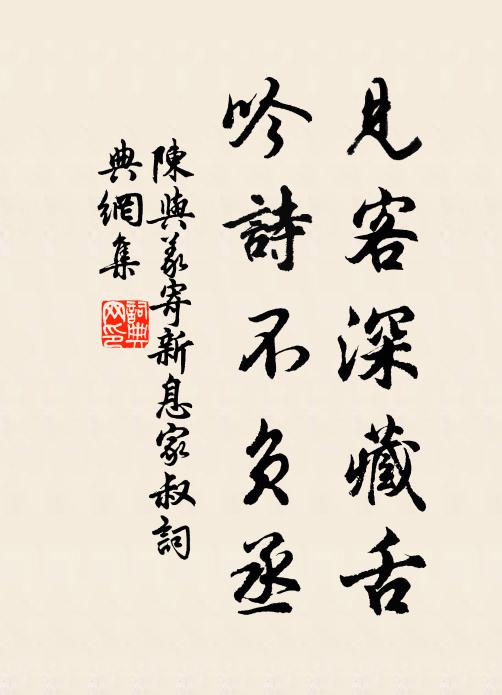 見客深藏舌
吟詩不負丞
陳與義寄新息家叔詞
典網集
詞典
网印